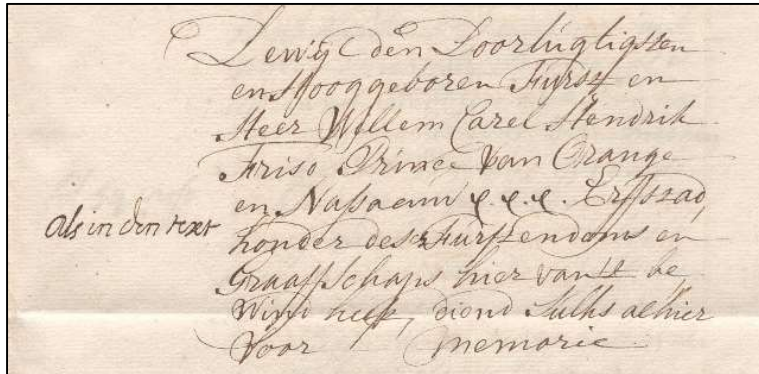 Dewijl den Doorlugtigsten
en Hooggeboren Furst en
Heer Willem Carel Hendrik
Friso, Prince Van Orange
en Nassauw &. &. &. Erfstad,
houder des Furstendoms en
Graafschaps hier van 't be
Wind heeft, diend Sulks alhier
Voor Memorie
als in den text